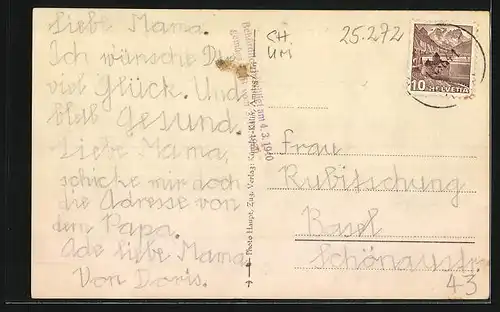 Liebe Mama.
Ich wünsche Dir
viel Glück. Und
bleib Gesund.
Liebe Mama,
schicke mir doch
die Adresse von
dem Papa.
Ade liebe Mama
Von Doris.
Photo Haupt, Zug. Verlag:
am 4. 3. 1940
CH
UM
25.272
10
HELVETIA
Frau
Rubitschung
Basel
Schönaustr.
43